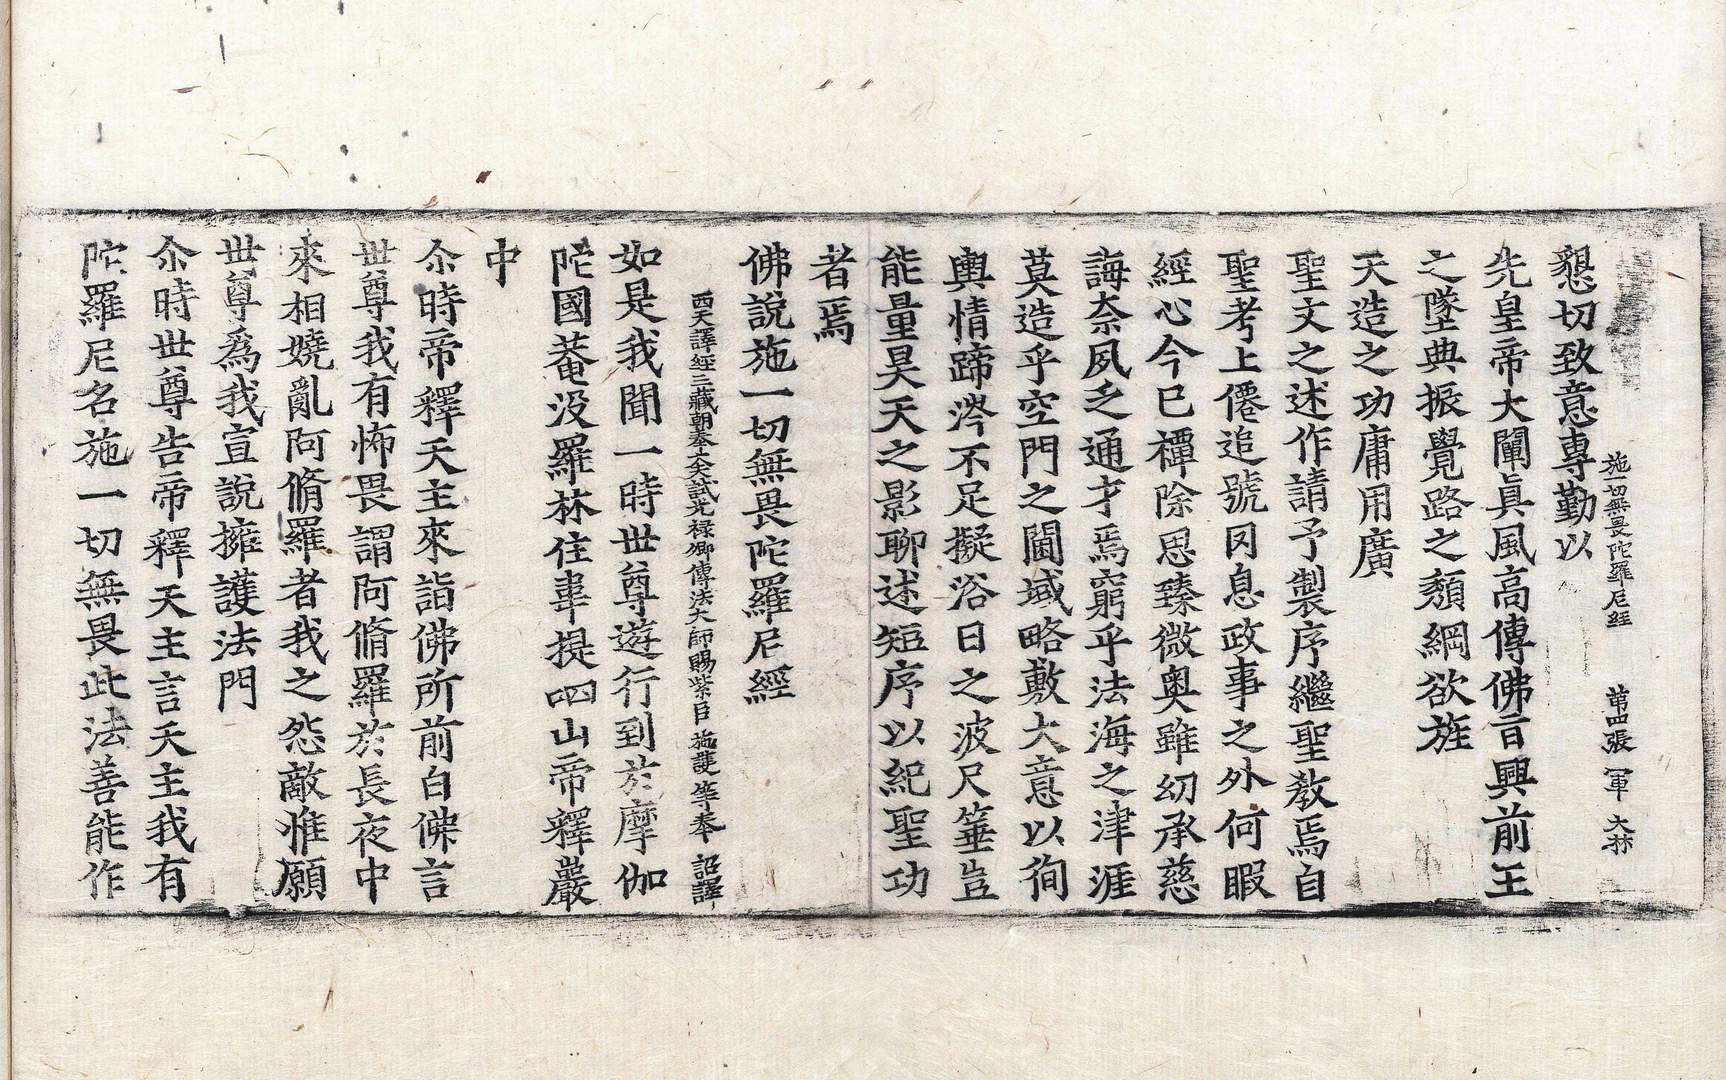 施一切無畏陀羅尼經 第四張 軍 大林
懇切致意專勤以
先皇帝大闡眞風高傳佛旨興前王
之墜典振覺路之頹綱欲旌
天造之功庸用廣
聖文之述作請予製序繼聖教焉自
聖考上僊追號罔息政事之外何暇
經心今已禫除思臻微奧雖幼承慈
誨奈夙乏通才焉窮乎法海之津涯
莫造乎空門之閫域略敷大意以徇
輿情蹄涔不足擬浴日之波尺箠豈
能量昊天之影聊述短序以紀聖功
者焉
佛說施一切無畏陀羅尼經
西天譯經三藏朝奉大夫試光祿卿傳法大師賜紫臣 施護等奉 詔譯
如是我聞一時世尊遊行到於摩伽
陀國菴没羅林住韋提呬山帝釋巖
中
尒時帝釋天主來詣佛所前白佛言
世尊我有怖畏謂阿脩羅於長夜中
來相嬈亂阿脩羅者我之怨敵惟願
世尊爲我宣說擁護法門
尒時世尊告帝釋天主言天主我有
陀羅尼名施一切無畏此法善能作